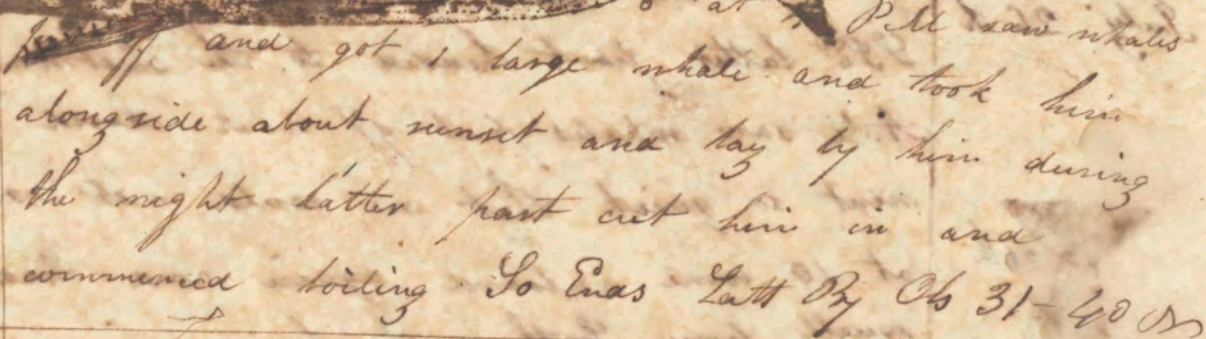 at PM saw whales
and got 1 large whale and took him
alongside about sunset and lay by him during
the night latter part cut him in and
commenced boiling So Ends Latt By Obs 31-40